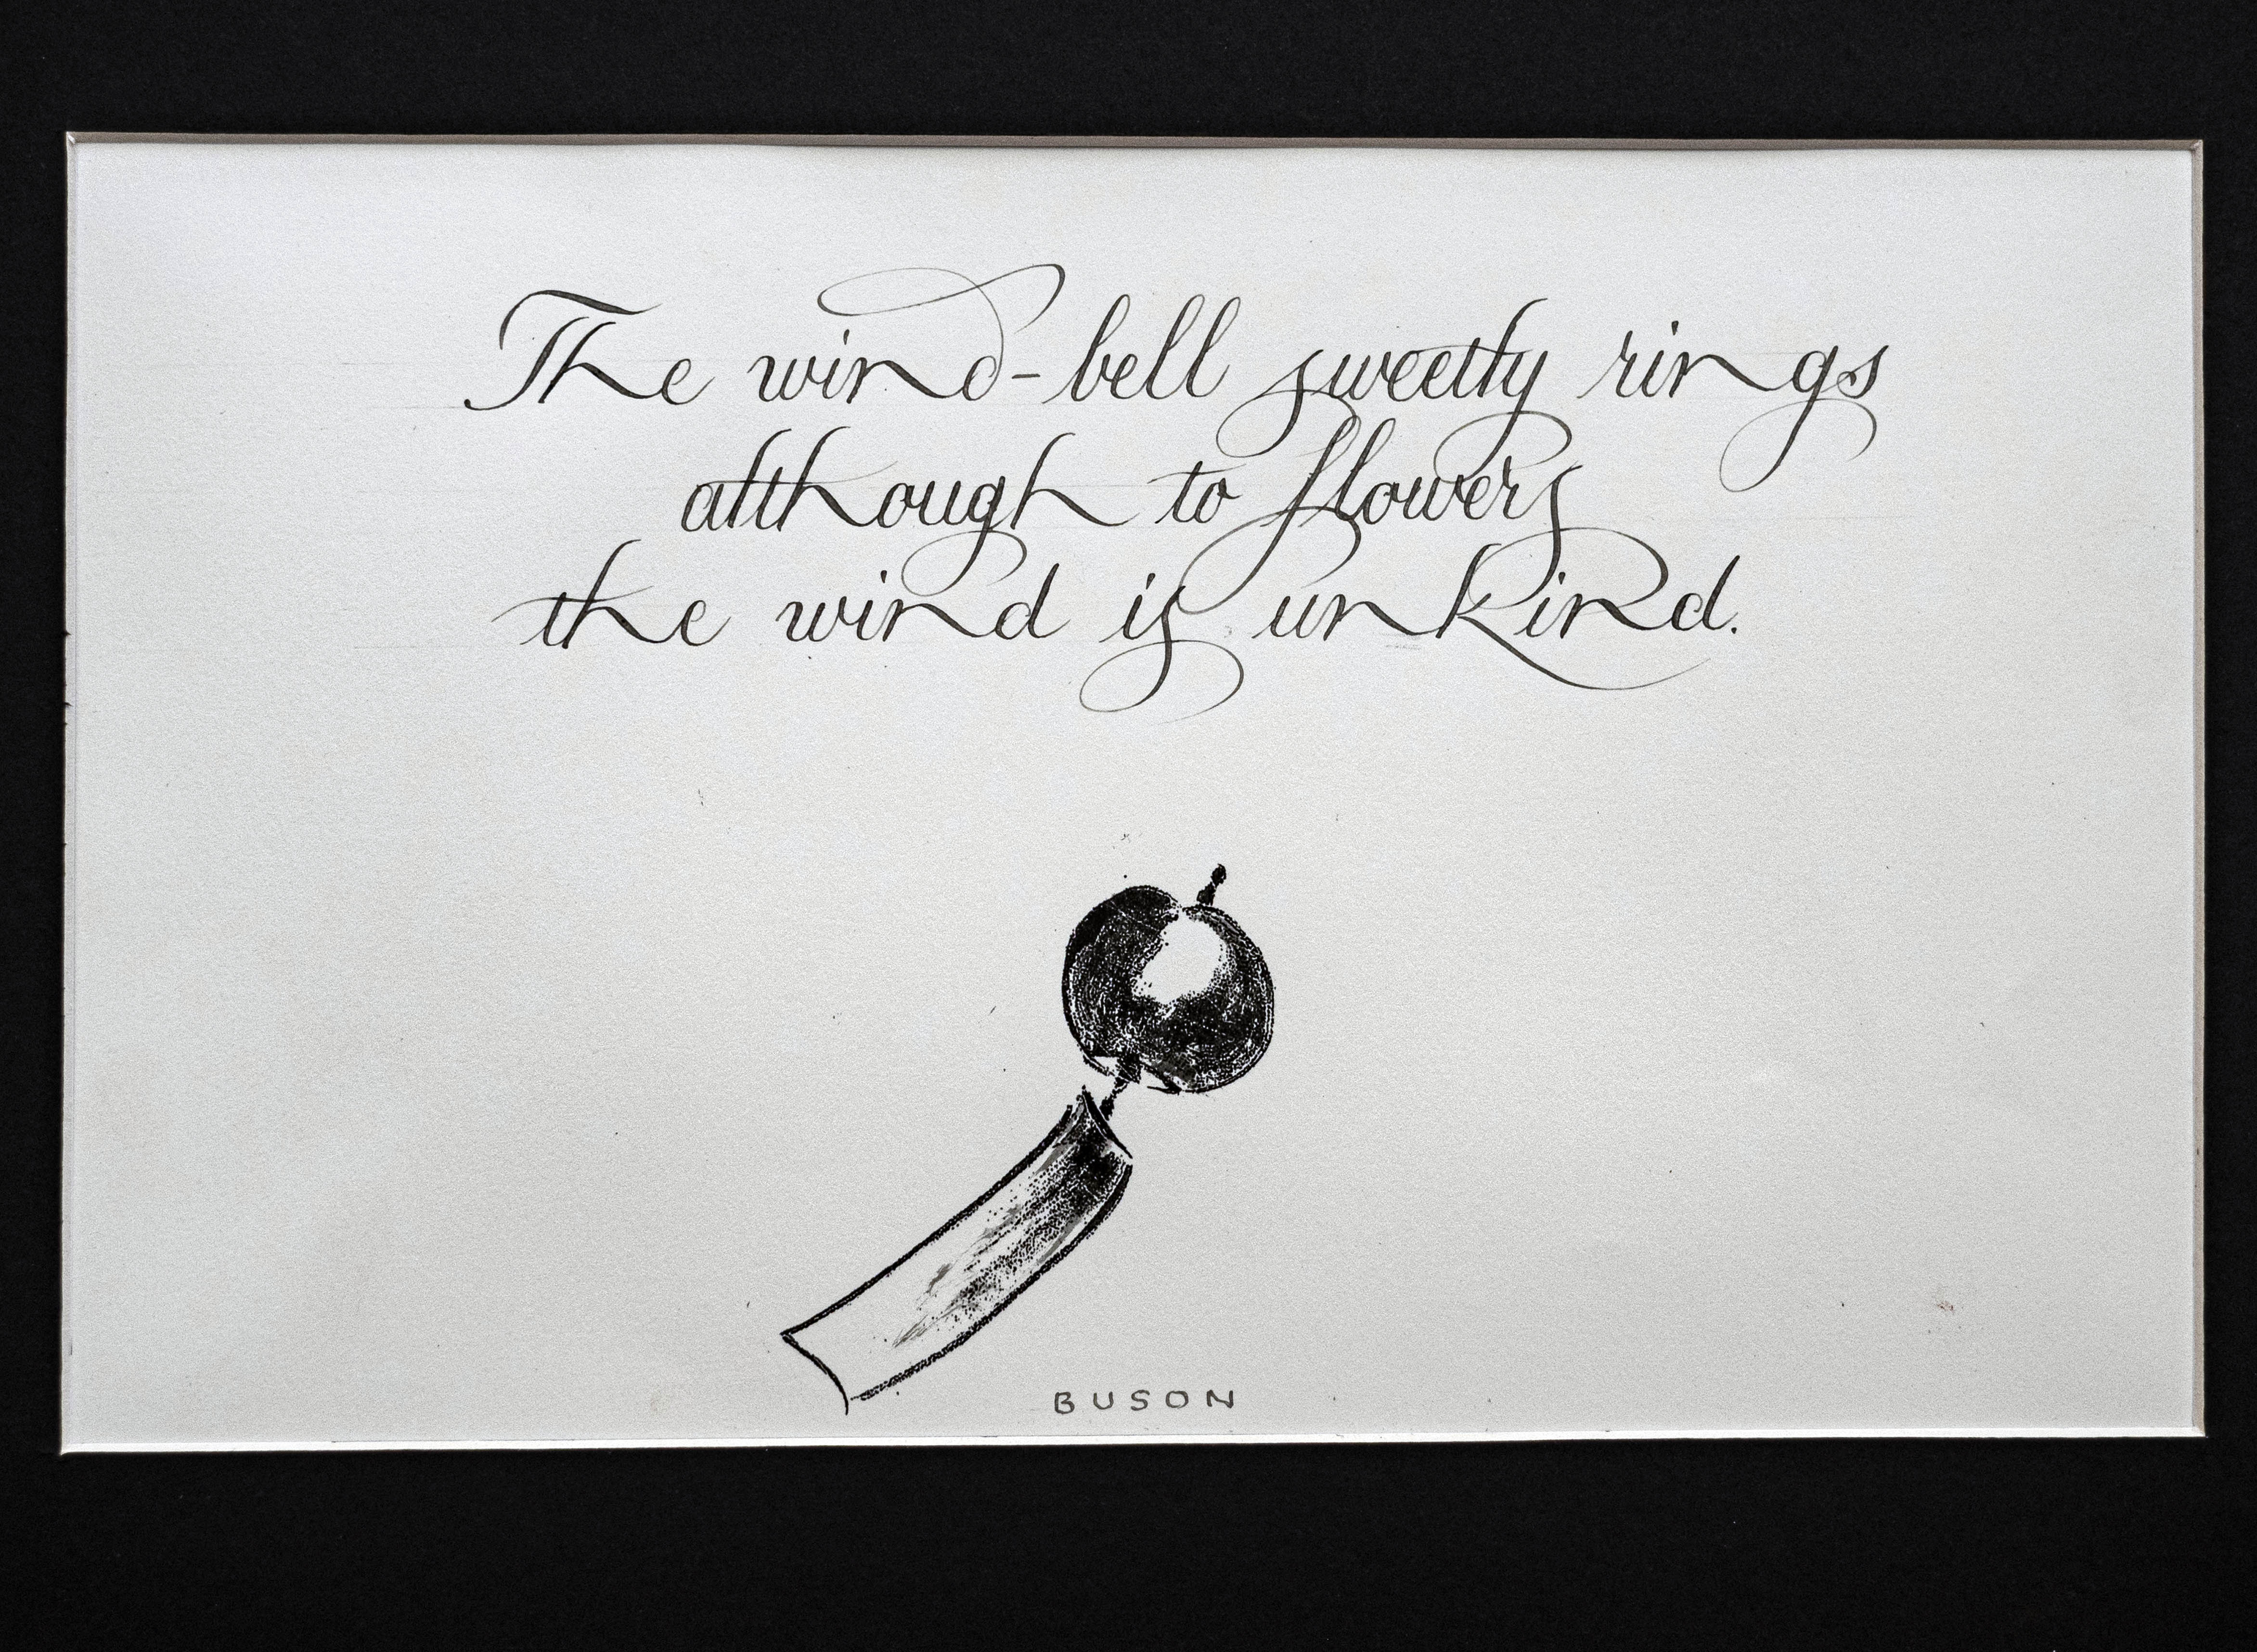 The wind-bell sweetly rings
although to flowers
the wind is unkind.
BUSON